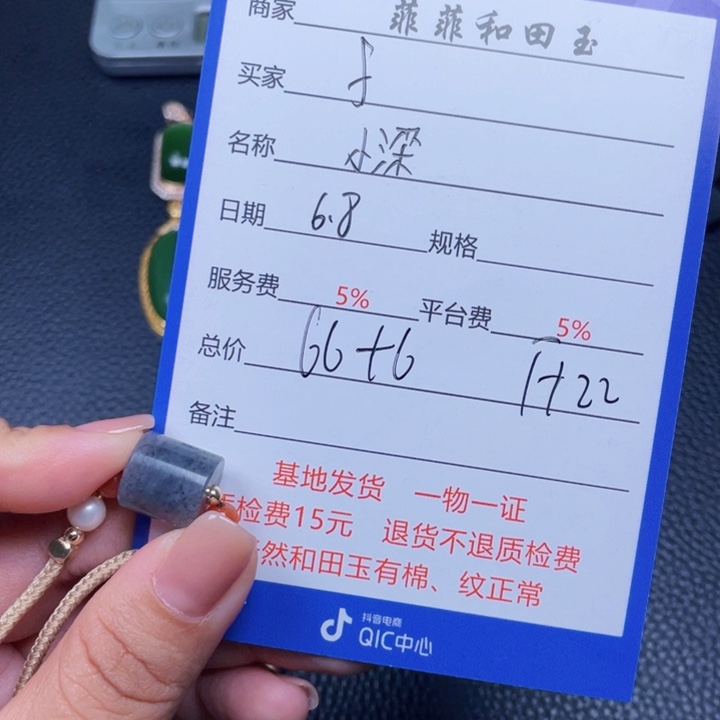 商家 菲菲和田玉
买家
名称 小深
日期 6.8 规格
服务费 5% 平台费 5%
总价 66+6 1+22
备注
基地发货 一物一证
检费15元 退货不退质检费
然和田玉有棉、纹正常
抖音电商
QIC中心